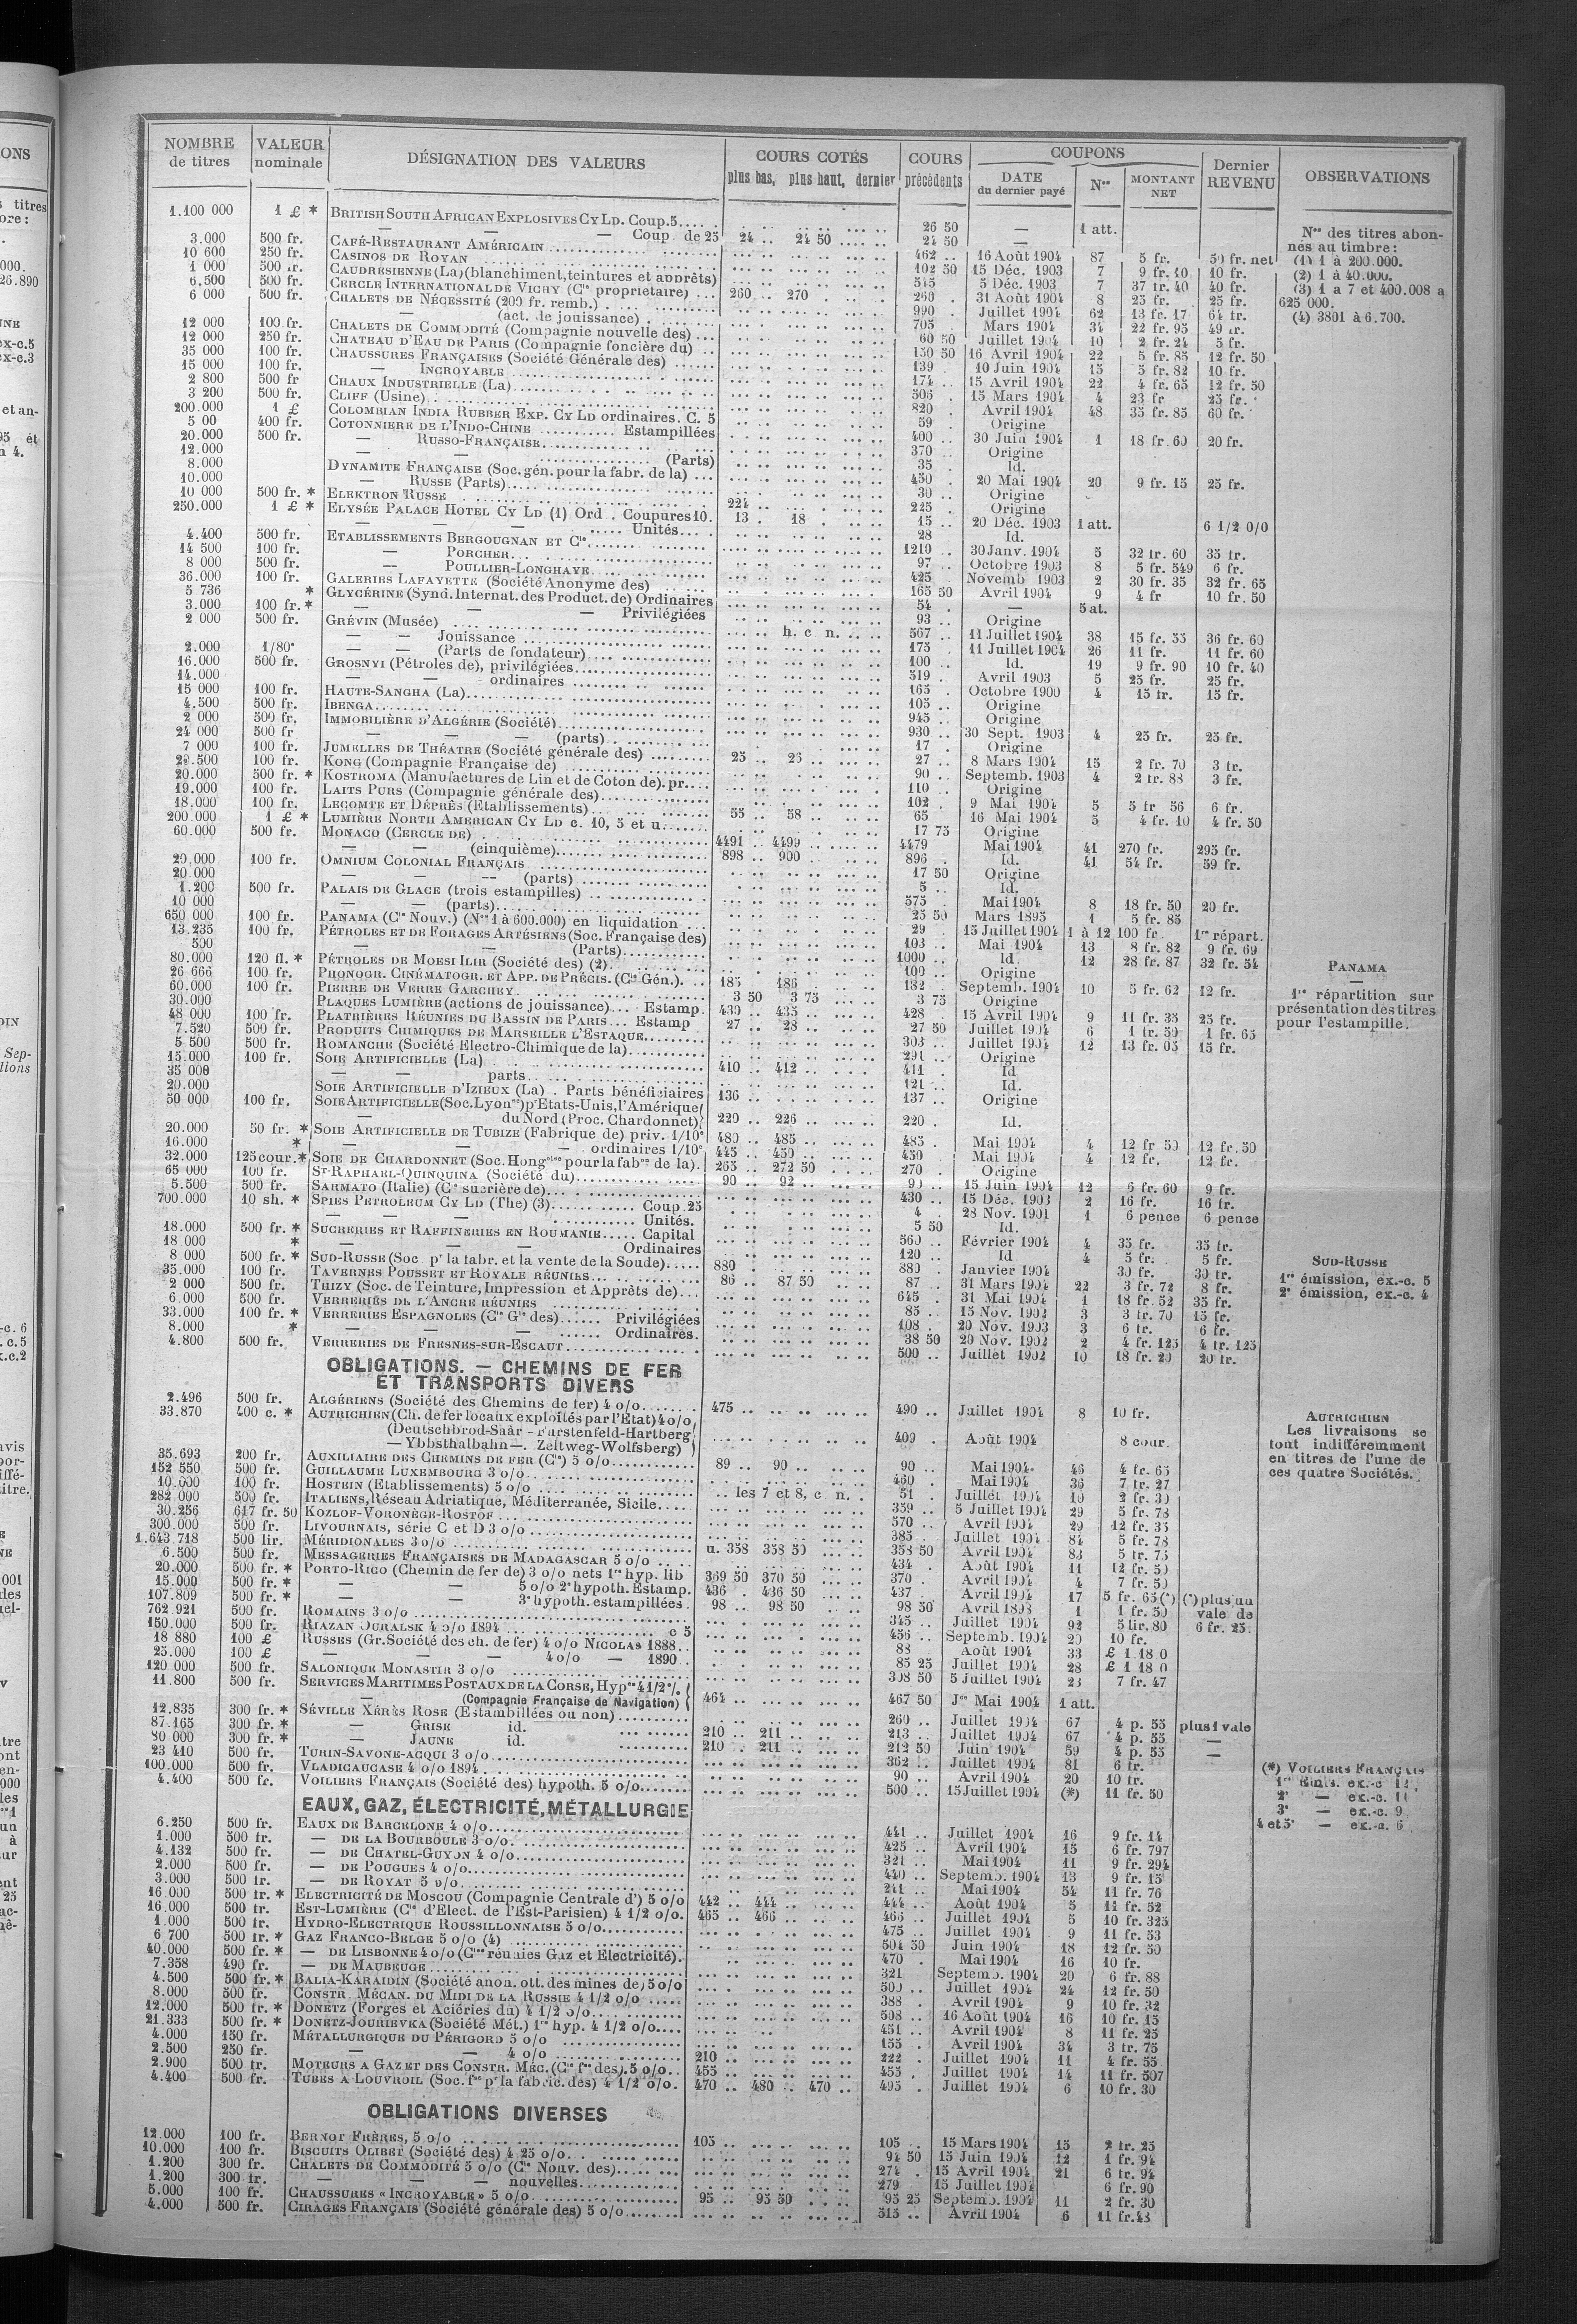 NOMBRE de titres VALEUR nominale DÉSIGNATION DES VALEURS COURS COTÉS plus bas, plus haut, dernier COURS précédents COUPONS DATE du dernier payé Nos MONTANT NET Dernier REVENU OBSERVATIONS
1.100 000 1 £ * BRITISH SOUTH AFRICAN EXPLOSIVES CY LD. Coup.5..... 26 50 — 1 att.
— — — Coup. de 25 24 .. 24 50 24 50 —
3.000 500 fr. CAFÉ-RESTAURANT AMÉRICAIN 462 .. 16 Août 1904 87 5 fr. 50 fr. net
10 600 250 fr. CASINOS DE ROYAN 102 50 15 Déc. 1903 7 9 fr. 40 10 fr.
1 000 500 fr. CAUDRESIENNE (La) (blanchiment, teintures et apprêts) 515 5 Déc. 1903 7 37 fr. 40 40 fr.
6.500 500 fr. CERCLE INTERNATIONAL DE VICHY (Cie propriétaire) ... 260 .. 270 . 260 . 31 Août 1904 8 25 fr. 25 fr.
6 000 500 fr. CHALETS DE NÉCESSITÉ (209 fr. remb.) 990 . Juillet 1904 62 13 fr. 17 64 fr.
— (act. de jouissance) 705 Mars 1904 34 22 fr. 95 49 fr.
12 000 100 fr. CHALETS DE COMMODITÉ (Compagnie nouvelle des) ... 60 50 Juillet 1904 10 2 fr. 24 5 fr.
12 000 250 fr. CHATEAU D'EAU DE PARIS (Compagnie foncière du) 150 50 16 Avril 1904 22 5 fr. 85 12 fr. 50
35 000 100 fr. CHAUSSURES FRANÇAISES (Société Générale des) 139 . 10 Juin 1904 15 5 fr. 82 10 fr.
15 000 100 fr. — INCROYABLE 174 .. 15 Avril 1904 22 4 fr. 65 12 fr. 50
2 800 500 fr CHAUX INDUSTRIELLE (La) 506 . 15 Mars 1904 4 23 fr 25 fr.
3 200 500 fr. CLIFF (Usine) 820 . Avril 1904 48 35 fr. 85 60 fr.
200.000 1 £ COLOMBIAN INDIA RUBBER EXP. CY LD ordinaires. C. 5 59 . Origine
5 00 400 fr. COTONNIERE DE L'INDO-CHINE Estampillées 400 .. 30 Juin 1904 1 18 fr. 60 20 fr.
20.000 500 fr. — RUSSO-FRANÇAISE 370 .. Origine
12.000 (Parts) 35 . Id.
8.000 DYNAMITE FRANÇAISE (Soc. gén. pour la fabr. de la) ... 450 . 20 Mai 1904 20 9 fr. 15 25 fr.
10.000 — RUSSE (Parts) 30 .. Origine
10 000 500 fr. * ELEKTRON RUSSE 224 .. 225 . Origine
250.000 1 £ * ELYSÉE PALACE HOTEL CY LD (1) Ord . Coupures 10. 13 . 18 . 15 .. 20 Déc. 1903 1 att. 6 1/2 0/0
— — — Unités 28 Id.
4.400 500 fr. ETABLISSEMENTS BERGOUGNAN ET Cie 1210 .. 30 Janv. 1904 5 32 fr. 60 35 fr.
14 500 100 fr. — PORCHER 97 .. Octobre 1903 8 5 fr. 549 6 fr.
8 000 500 fr. — POULLIER-LONGHAYE 425 Novemb 1903 2 30 fr. 35 32 fr. 65
36.000 100 fr. GALERIES LAFAYETTE (Société Anonyme des) 165 50 Avril 1904 9 4 fr 10 fr. 50
5 736 * GLYCÉRINE (Synd. Internat. des Product. de) Ordinaires 54 . — 5 at.
3.000 100 fr. * — — — Privilégiées 93 .. Origine
2 000 500 fr. GRÉVIN (Musée) h. c n. 567 .. 11 Juillet 1904 38 15 fr. 55 36 fr. 60
— — Jouissance 175 . 11 Juillet 1904 26 11 fr. 11 fr. 60
2.000 1/80e — — (Parts de fondateur) 100 .. Id. 19 9 fr. 90 10 fr. 40
16.000 500 fr. GROSNYI (Pétroles de), privilégiées 519 . Avril 1903 5 25 fr. 25 fr.
14.000 — — ordinaires 165 . Octobre 1900 4 15 fr. 15 fr.
15 000 100 fr. HAUTE-SANGHA (La) 105 .. Origine
4.500 500 fr. IBENGA 945 .. Origine
2 000 500 fr. IMMOBILIÈRE D'ALGÉRIE (Société) 930 .. 30 Sept. 1903 4 25 fr. 25 fr.
24 000 500 fr — — — (parts) 17 . Origine
7 000 100 fr. JUMELLES DE THÉATRE (Société générale des) 25 .. 25 .. 27 .. 8 Mars 1904 15 2 fr. 70 3 fr.
29.500 100 fr. KONG (Compagnie Française de) 90 .. Septemb. 1903 4 2 fr. 88 3 fr.
20.000 500 fr. * KOSTROMA (Manufactures de Lin et de Coton de). pr. 110 .. Origine
19.000 100 fr. LAITS PURS (Compagnie générale des) 102 . 9 Mai 1904 5 5 fr 56 6 fr.
18.000 100 fr. LECOMTE ET DÉPRÈS (Etablissements) 55 .. 58 .. 65 16 Mai 1904 5 4 fr. 10 4 fr. 50
200 000 1 £ * LUMIÈRE NORTH AMERICAN CY LD c. 10, 5 et u. 17 75 Origine
60.000 500 fr. MONACO (CERCLE DE) 4491 .. 4499 .. 4479 Mai 1904 41 270 fr. 295 fr.
— — (cinquième) 898 .. 900 .. 896 . Id. 41 54 fr. 59 fr.
20.000 100 fr. OMNIUM COLONIAL FRANÇAIS 17 50 Origine
20.000 — — — (parts) 5 .. Id.
1.200 500 fr. PALAIS DE GLACE (trois estampilles) 575 . Mai 1904 8 18 fr. 50 20 fr.
10 000 — — (parts) 25 50 Mars 1895 1 5 fr. 85
650 000 100 fr. PANAMA (Cie Nouv.) (Nos 1 à 600.000) en liquidation ... 29 . 15 Juillet 1904 1 à 12 100 fr. 1re répart.
13.235 100 fr. PÉTROLES ET DE FORAGES ARTÉSIENS (Soc. Française des) 103 .. Mai 1904 13 8 fr. 82 9 fr. 69
500 — — (Parts) 1000 .. Id 12 28 fr. 87 32 fr. 54
80.000 120 fl. * PÉTROLES DE MORSI ILIR (Société des) (2) 109 .. Origine
26 666 100 fr. PHONOGR. CINÉMATOGR. ET APP. DE PRÉCIS. (Cie Gén.) 185 186 . 182 . Septemb. 1904 10 5 fr. 62 12 fr.
60.000 100 fr. PIERRE DE VERRE GARCHEY 3 50 3 75 3 75 Origine
30.000 PLAQUES LUMIÈRE (actions de jouissance) Estamp. 430 .. 435 .. 428 . 15 Avril 1904 9 11 fr. 35 25 fr.
48 000 100 fr. PLATRIÈRES RÉUNIES DU BASSIN DE PARIS Estamp 27 .. 28 .. 27 50 Juillet 1904 6 1 fr. 59 1 fr. 65
7.520 500 fr. PRODUITS CHIMIQUES DE MARSEILLE L'ESTAQUE 303 .. Juillet 1904 12 13 fr. 05 15 fr.
5 500 500 fr. ROMANCHE (Société Electro-Chimique de la) 291 .. Origine
15.000 100 fr. SOIE ARTIFICIELLE (La) 410 .. 412 .. 411 . Id
35 000 — — parts 121 .. Id.
20.000 SOIE ARTIFICIELLE D'IZIEUX (La) . Parts bénéficiaires 136 .. 137 .. Origine
50 000 100 fr. SOIE ARTIFICIELLE (Soc. Lyonnse) pr Etats-Unis, l'Amérique
— du Nord (Proc. Chardonnet) 220 .. 226 .. 220 . Id.
20.000 50 fr. * SOIE ARTIFICIELLE DE TUBIZE (Fabrique de) priv. 1/10e 480 .. 485 .. 485 . Mai 1904 4 12 fr 50 12 fr. 50
16.000 * — — ordinaires 1/10e 445 .. 450 .. 450 . Mai 1904 4 12 fr. 12 fr.
32.000 125 cour. * SOIE DE CHARDONNET (Soc. Hongoise pour la fabon de la). 265 .. 272 50 270 . Origine
65 000 100 fr. ST-RAPHAEL-QUINQUINA (Société du) 90 .. 92 .. 90 .. 15 Juin 1904 12 6 fr. 60 9 fr.
5.500 500 fr. SARMATO (Italie) (Cie sucrière de) 430 .. 15 Déc. 1903 2 16 fr. 16 fr.
700.000 10 sh. * SPIES PETROLEUM CY LD (The) (3) Coup. 25 4 . 28 Nov. 1901 1 6 pence 6 pence
— — — Unités. 5 50 Id.
18.000 500 fr. * SUCRERIES ET RAFFINERIES EN ROUMANIE Capital 560 .. Février 1904 4 35 fr. 35 fr.
18 000 * — — Ordinaires 120 .. Id 4 5 fr. 5 fr.
8 000 500 fr. * SUD-RUSSE (Soc pr la fabr. et la vente de la Soude) 880 880 . Janvier 1904 30 fr. 30 fr.
35.000 100 fr. TAVERNES POUSSET ET ROYALE RÉUNIES 86 .. 87 50 87 .. 31 Mars 1904 22 3 fr. 72 8 fr.
2 000 500 fr. THIZY (Soc. de Teinture, Impression et Apprêts de) 645 . 31 Mai 1904 1 18 fr. 52 35 fr.
6.000 500 fr. VERRERIES DE L'ANCRE RÉUNIES 85 .. 15 Nov. 1902 3 3 fr. 70 15 fr.
33.000 100 fr. * VERRERIES ESPAGNOLES (Cie Gle des) Privilégiées 108 . 20 Nov. 1903 3 6 fr. 6 fr.
8.000 * — — — Ordinaires. 38 50 20 Nov. 1902 2 4 fr. 125 4 fr. 125
4.800 500 fr. VERRERIES DE FRESNES-SUR-ESCAUT 500 .. Juillet 1902 10 18 fr. 20 20 fr.
OBLIGATIONS. — CHEMINS DE FER
ET TRANSPORTS DIVERS
2.496 500 fr. ALGÉRIENS (Société des Chemins de fer) 4 o/o 475 .. 490 .. Juillet 1904 8 10 fr.
33.870 400 c. * AUTRICHIEN (Ch. de fer locaux exploités par l'Etat) 4 o/o
(Deutschbrod-Saar - Furstenfeld-Hartberg
— Ybbsthalbahn —. Zeltweg-Wolfsberg) 409 . Août 1904 8 cour.
35.693 200 fr. AUXILIAIRE DES CHEMINS DE FER (Cie) 5 o/o 89 .. 90 .. 90 .. Mai 1904 46 4 fr. 65
152 550 500 fr. GUILLAUME LUXEMBOURG 3 o/o 460 . Mai 1904 36 7 fr. 27
10.000 100 fr. HOSTEIN (Etablissements) 5 o/o les 7 et 8, c n. 51 . Juillet 1904 10 2 fr. 30
282.000 500 fr. ITALIENS, Réseau Adriatique, Méditerranée, Sicile 359 .. 5 Juillet 1904 29 5 fr. 78
30.256 617 fr. 50 KOZLOF-VORONÈGE-ROSTOF 570 .. Avril 1904 29 12 fr. 35
300.000 500 fr. LIVOURNAIS, série C et D 3 o/o 385 . Juillet 1904 84 5 fr. 78
1.643.718 500 lir. MÉRIDIONALES 3 o/o u. 358 358 50 358 50 Avril 1904 83 5 fr. 75
6.500 500 fr. MESSAGERIES FRANÇAISES DE MADAGASCAR 5 o/o 434 . Août 1904 11 12 fr. 50
20.000 500 fr. * PORTO-RICO (Chemin de fer de) 3 o/o nets 1re hyp. lib 369 50 370 50 370 . Avril 1904 4 7 fr. 50
15.000 500 fr. * — — 5 o/o 2e hypoth. Estamp. 436 . 436 50 437 . Avril 1904 17 5 fr. 65 (*) (*) plus un
107.809 500 fr. * — — 3e hypoth. estampillées 98 .. 98 50 98 50 Avril 1898 1 1 fr. 50 vale de
762.921 500 fr. ROMAINS 3 o/o 345 .. Juillet 1904 92 5 lir. 80 6 fr. 25.
150.000 500 fr. RIAZAN OURALSK 4 o/o 1894 c 5 456 .. Septemb. 1904 20 10 fr.
18 880 100 £ RUSSES (Gr. Société des ch. de fer) 4 o/o NICOLAS 1888 88 Août 1904 33 £ 1.18 0
25.000 100 £ — — — 4 o/o — 1890 85 25 Juillet 1904 28 £ 1 18 0
120 000 500 fr. SALONIQUE MONASTIR 3 o/o 308 50 5 Juillet 1904 23 7 fr. 47
11.800 500 fr. SERVICES MARITIMES POSTAUX DE LA CORSE, Hypres 4 1/2 %
— (Compagnie Française de Navigation) 464 467 50 Jer Mai 1904 1 att.
12.835 300 fr. * SÉVILLE XÉRÈS ROSE (Estambillées ou non) 260 .. Juillet 1904 67 4 p. 55 plus 1 vale
87.165 300 fr. * — GRISE id. 210 .. 211 .. 213 .. Juillet 1904 67 4 p. 55 —
80 000 300 fr. * — JAUNE id. 210 .. 211 .. 212 50 Juin 1904 59 4 p. 55 —
23 410 500 fr. TURIN-SAVONE-ACQUI 3 o/o 362 .. Juillet 1904 81 6 fr.
100.000 500 fr. VLADICAUCASE 4 o/o 1894 90 .. Avril 1904 20 10 fr.
4.400 500 fr. VOILIERS FRANÇAIS (Société des) hypoth. 5 o/o 500 .. 15 Juillet 1904 (*) 11 fr. 50
EAUX, GAZ, ÉLECTRICITÉ, MÉTALLURGIE
6.250 500 fr. EAUX DE BARCELONE 4 o/o 441 .. Juillet 1904 16 9 fr. 14
1.000 500 fr. — DE LA BOURBOULE 3 o/o 425 .. Avril 1904 15 6 fr. 797
4.132 500 fr. — DE CHATEL-GUYON 4 o/o 321 .. Mai 1904 11 9 fr. 294
2.000 500 fr. — DE POUGUES 4 o/o 440 .. Septemb. 1904 13 9 fr. 15
3.000 500 fr. — DE ROYAT 5 o/o 241 .. Mai 1904 54 11 fr. 76
16.000 500 fr. * ELECTRICITÉ DE MOSCOU (Compagnie Centrale d') 5 o/o 442 .. 444 .. 444 .. Août 1904 5 11 fr. 52
16.000 500 fr. EST-LUMIÈRE (Cie d'Elect. de l'Est-Parisien) 4 1/2 o/o. 465 .. 466 .. 466 .. Juillet 1904 5 10 fr. 325
1.000 500 fr. HYDRO-ELECTRIQUE ROUSSILLONNAISE 5 o/o 475 .. Juillet 1904 9 11 fr. 53
6 700 500 fr. * GAZ FRANCO-BELGE 5 o/o (4) 504 50 Juin 1904 18 12 fr. 50
40.000 500 fr. * — DE LISBONNE 4 o/o (Cies réunies Gaz et Electricité). 470 . Mai 1904 16 10 fr.
7.358 490 fr. — DE MAUBEUGE 321 Septemb. 1904 20 6 fr. 88
4.500 500 fr. * BALIA-KARAIDIN (Société anon. ott. des mines de) 5 o/o 500 .. Juillet 1904 24 12 fr. 50
8.000 500 fr. CONSTR. MÉCAN. DU MIDI DE LA RUSSIE 4 1/2 o/o 388 . Avril 1904 9 10 fr. 32
12.000 500 fr. * DONETZ (Forges et Aciéries du) 4 1/2 o/o 508 .. 16 Août 1904 16 10 fr. 15
21.333 500 fr. * DONETZ-JOURIEVKA (Société Mét.) 1re hyp. 4 1/2 o/o 451 .. Avril 1904 8 11 fr. 25
4.000 150 fr. MÉTALLURGIQUE DU PÉRIGORD 5 o/o 155 .. Avril 1904 34 3 fr. 75
2.500 250 fr. — — 4 o/o 210 .. 222 . Juillet 1904 11 4 fr. 55
2.900 500 fr. MOTEURS A GAZ ET DES CONSTR. MÉC. (Cie fse des). 5 o/o 455 .. 455 . Juillet 1904 14 11 fr. 507
4.400 500 fr. TUBES A LOUVROIL (Soc. fse pr la fabric. des) 4 1/2 o/o. 470 .. 480 .. 470 .. 495 . Juillet 1904 6 10 fr. 30
OBLIGATIONS DIVERSES
12.000 100 fr. BERNOT FRÈRES, 5 o/o 105 .. 105 .. 15 Mars 1904 15 2 fr. 25
10.000 100 fr. BISCUITS OLIBET (Société des) 4 25 o/o 94 50 15 Juin 1904 12 1 fr. 94
1.200 300 fr. CHALETS DE COMMODITÉ 5 o/o (Cie Nouv. des) 274 . 15 Avril 1904 21 6 fr. 94
1.200 300 fr. — — — nouvelles 279 15 Juillet 1904 6 fr. 90
5.000 100 fr. CHAUSSURES « INCROYABLE » 5 o/o 95 .. 95 50 95 25 Septemb. 1904 11 2 fr. 30
4.000 500 fr. CIRAGES FRANÇAIS (Société générale des) 5 o/o 515 .. Avril 1904 6 11 fr. 43
Nos des titres abonnés au timbre:
(1) 1 à 200.000.
(2) 1 à 40.000.
(3) 1 à 7 et 400.008 a
625 000.
(4) 3801 à 6.700.
PANAMA
1re répartition sur
présentation des titres
pour l'estampille.
SUD-RUSSE
1re émission, ex-c. 5
2e émission, ex-c. 4
AUTRICHIEN
Les livraisons se
font indifféremment
en titres de l'une de
ces quatre Sociétés.
(*) VOILIERS FRANÇAIS
1re Émis. ex.-c 12
2e — ex.-c. 11
3e — ex.-c. 9
4 et 5e — ex.-c. 6